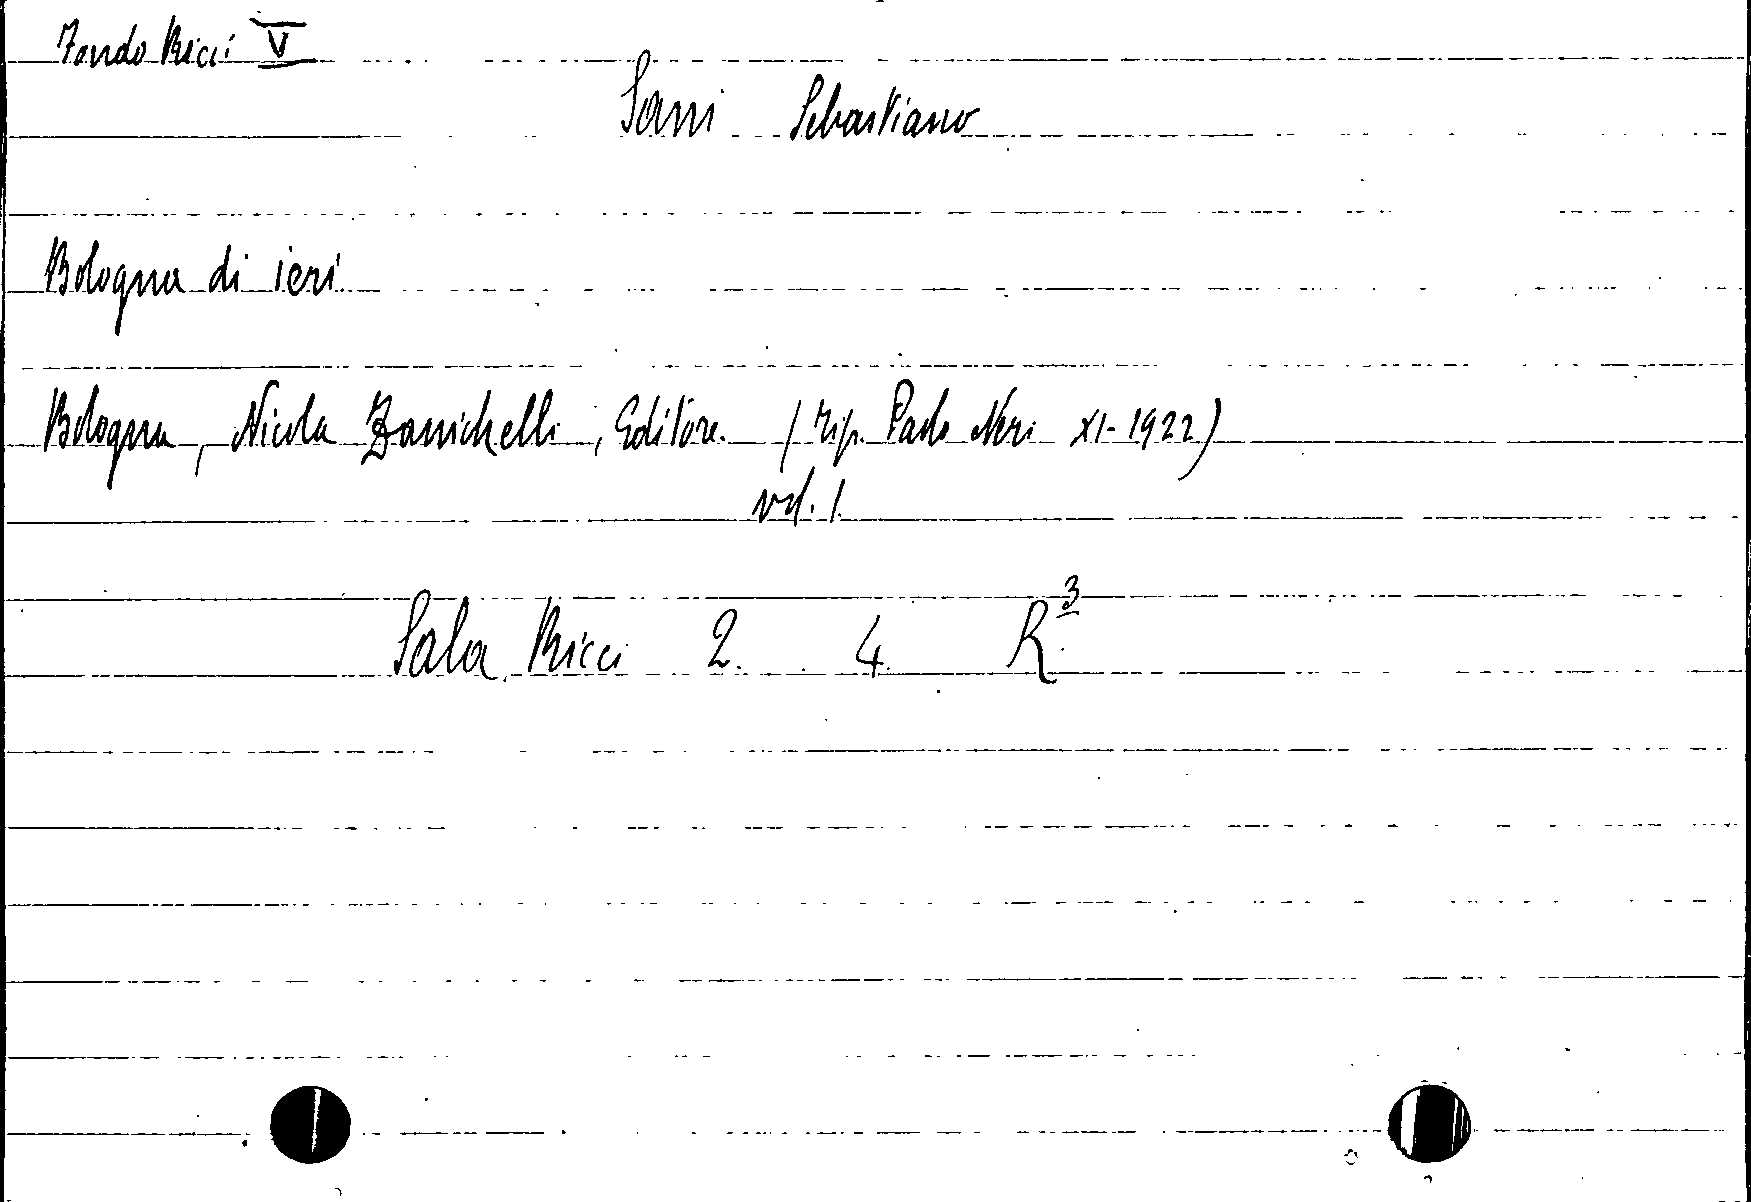 Fondo Ricci V
Sani Sebastiano
Bologna di ieri
Bologna, Nicola Zanichelli, Editore. (Tip. Paolo Neri XI-1922)
vol. 1.
Sala Ricci 2. 4. R³